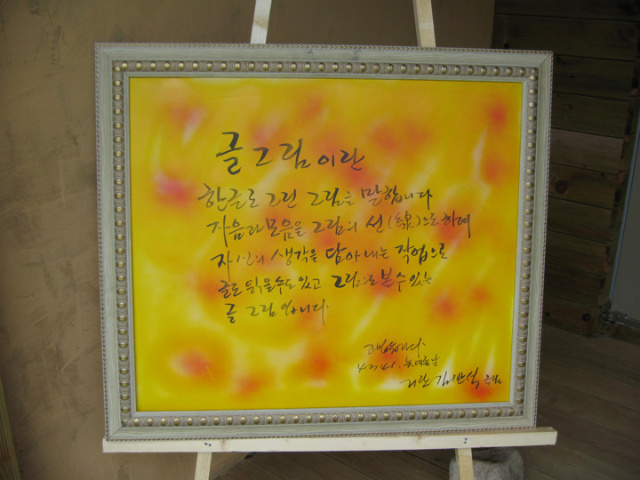 글 그림이란
한글로 그린 그림을 말합니다
자음과 모음을 그림의 선(線)으로 하여
자신의 생각을 담아내는 작업으로
글로 읽을수도 있고 그림으로 볼 수 있는
글 그림 입니다.
고맙습니다.
김반석